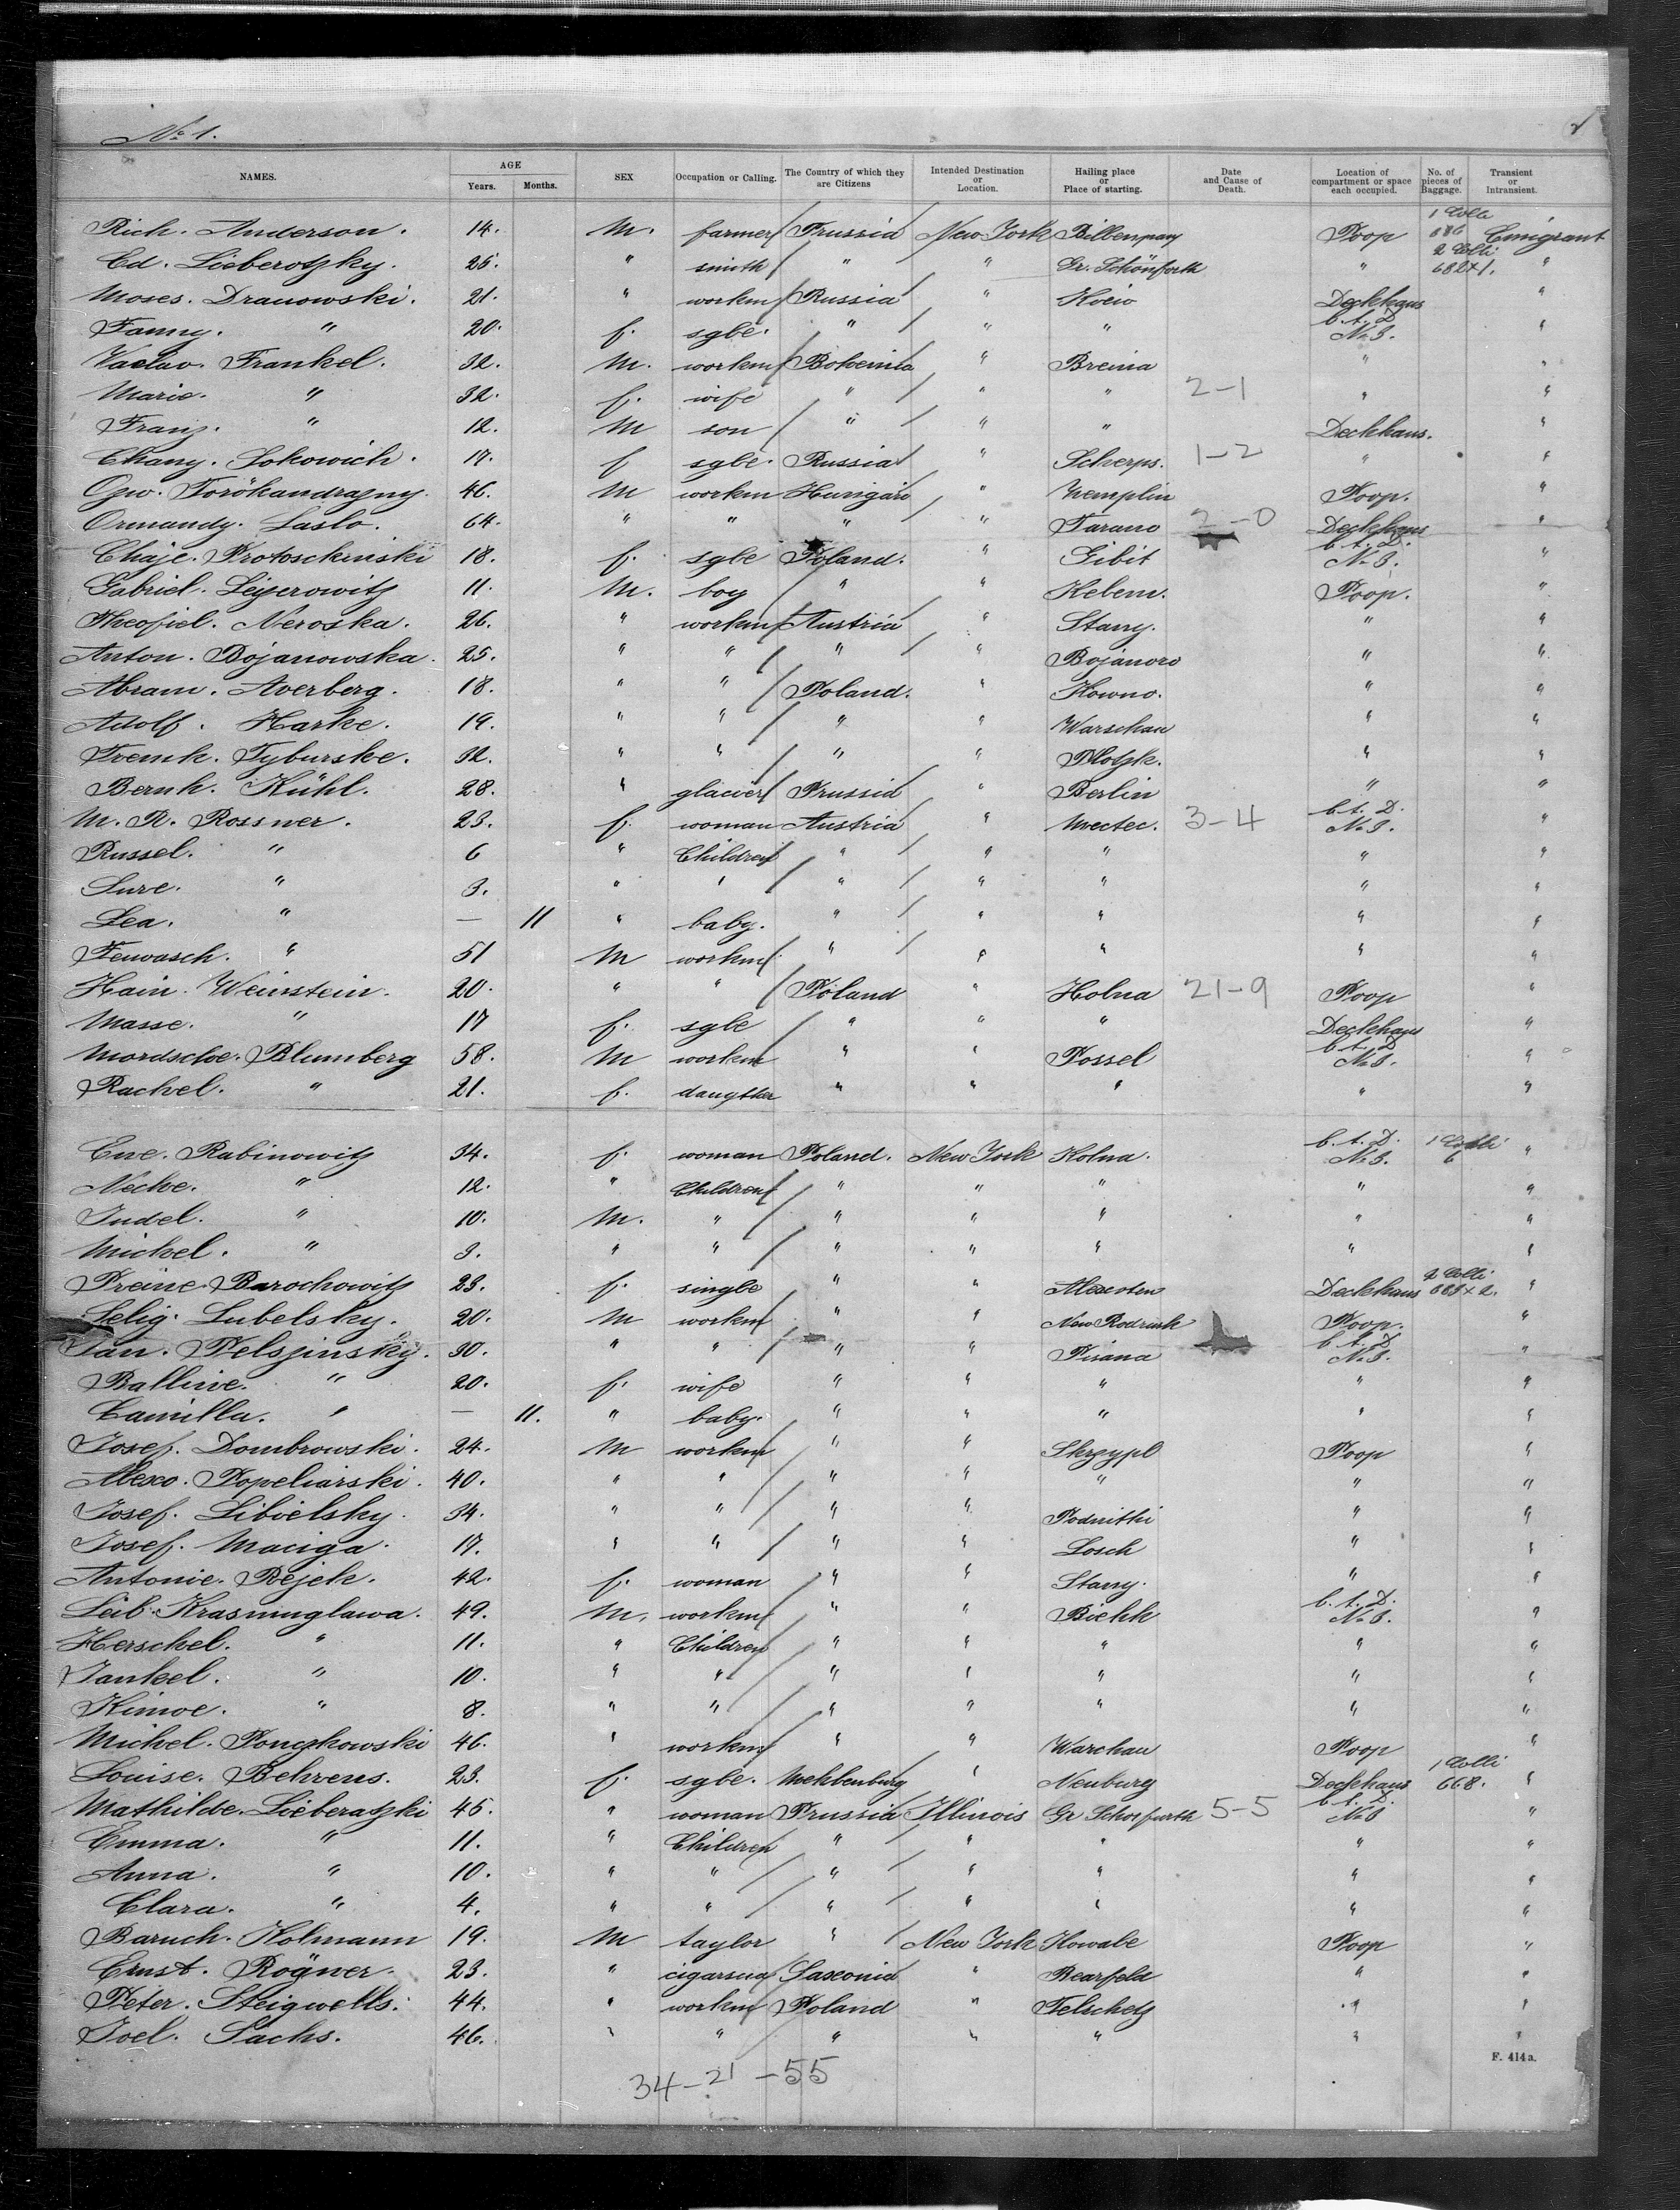 No 1.
NAMES. AGE Years. Months. SEX Occupation or Calling. The Country of which they are Citizens Intended Destination or Location. Hailing place or Place of starting. Date and Cause of Death. Location of compartment or space each occupied. No. of pieces of Baggage. Transient or Intransient.
Rich. Anderson. 14. M. farmer Prussia New York Poop 1 Colli Emigrant
Ed. Lieberotzky. 25. " smith " " " 2 Colli 682+1. "
Moses. Dranowski. 21. " workm Russia " Deckhaus "
Fanny. " 20. f. sgle. " " " b. t. D. No 3. "
Vaclav. Frankel. 32. M. workm Bohemia " " "
Marie. " 32. f. wife " " " 2-1 " "
Franz. " 12. M son " " " Deckhaus. "
Chany. Sokowich. 17. f sgle. Russia " Scherps. 1-2 " "
46. M workm " Poop. "
Ormandy. Laslo. 64. " " " " Tarano 2-0 Deckhaus "
Chaje. Protoschinski 18. f. sgle Poland. " Gibit b. t. D. No 3. "
Gabriel. Leyerowitz 11. M. boy " " Poop. "
Theofiel. Neroska. 26. " workm Austria " Stany. " "
Anton. Bojanowska. 25. " " " " Bojanoro " "
Abram. Averberg. 18. " " Poland. " Kowno. " "
Adolf. Harke. 19. " " " " Warschau " "
Tyburske. 32. " " " " Plotzk. " "
Bernh. Kühl. 28. " glacier Prussia " Berlin " "
M. R. Rossner. 23. f. woman Austria " 3-4 b. t. D. No 3. "
Russel. " 6 " Children " " " " "
Sure. " 3. " " " " " " "
Lea. " — 11 " baby. " " " " "
Feiwasch. " 51 M workm " " " " "
Hain. Weinstein. 20. " " Poland " Holna 21-9 Poop "
Masse. " 17 f. sgle " " " Deckhaus "
Mordsche. Blumberg 58. M workm " " Possel b. t. D No 3. "
Rachel. " 21. f. daugther " " " " "
Ewe. Rabinowitz 34. f. woman Poland. New York Kolna. b. t. D. No 3. 1 Colli 6 "
Neche. " 12. " Children " " " " "
Judel. " 10. M. " " " " " "
Michel. " 3. " " " " " " "
Preine. Barochowitz 23. f. single " " Alexoten Deckhaus 2 Colli "
Selig. Lubelsky. 20. M workm " " Poop. "
Jan. Pelszinsky. 30. " " " " Pisana b. t. D No 3. "
Balline. " 20. f. wife " " " " "
Camilla. " — 11. " baby. " " " " "
Josef. Dombrowski. 24. M workm " " Skrzypl Poop "
Alexo. Popeliarski. 40. " " " " " " "
Josef. Libielsky. 34. " " " " Podnithi " "
Josef. Maciga. 17. " " " " Losch " "
Antonie. Rejek. 42. f. woman " " Stany. " "
Leib. Krasninglawa. 49. M. workm " " Biehk b. t. D. No 3. "
Herschel. " 11. " Children " " " " "
Jankel. " 10. " " " " " " "
Kimoe. " 8. " " " " " " "
Michel. Ponczkowski 46. " workm " " Warchau Poop "
Louise. Behrens. 23. f. sgle. Mehlenburg " Neuburg Deckhaus 1 Colli 668. "
Mathilde. Lieberatzki 45. " woman Prussia Illinois Gr Schosfurth 5-5 b. t. D. No 3 "
Emma. " 11. " Children " " " " "
Anna. " 10. " " " " " " "
Clara. " 4. " " " " " " "
Baruch. Holmann 19. M taylor " New York Kowabe Poop "
Ernst. Rögner. 23. " Saxonia " Bearfeld " "
Peter. Steigwells. 44. " workm Poland " Telschetz " "
Joel. Sachs. 46. " " " " " " "
F. 414 a.
34-21-55